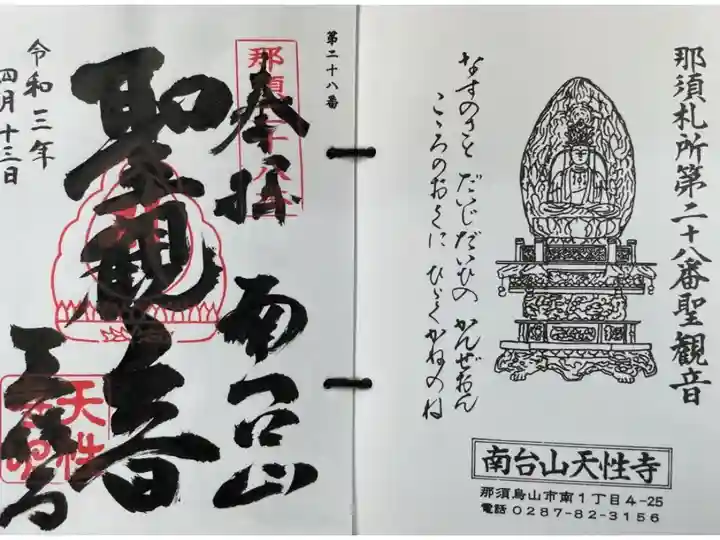 那須札所第二十八番聖観音
なすのさと だいじだいひの かんぜおん
こころのおとに ひゞくかねのね
南台山天性寺
那須烏山市南1丁目4-25
電話0287-82-3156
第二十八番
奉拝 南台山
聖観音
天性寺
令和三年
四月十三日